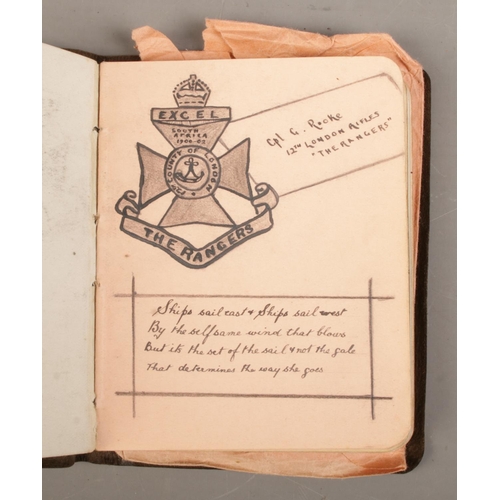 EXCEL
SOUTH
AFRICA
1900-02
12TH COUNTY OF LONDON
THE RANGERS
Cpl G. Rooke
12TH LONDON RIFLES
"THE RANGERS"
Ships sail east & Ships sail west
By the self same wind that blows
But it's the set of the sail & not the gale
That determines the way she goes